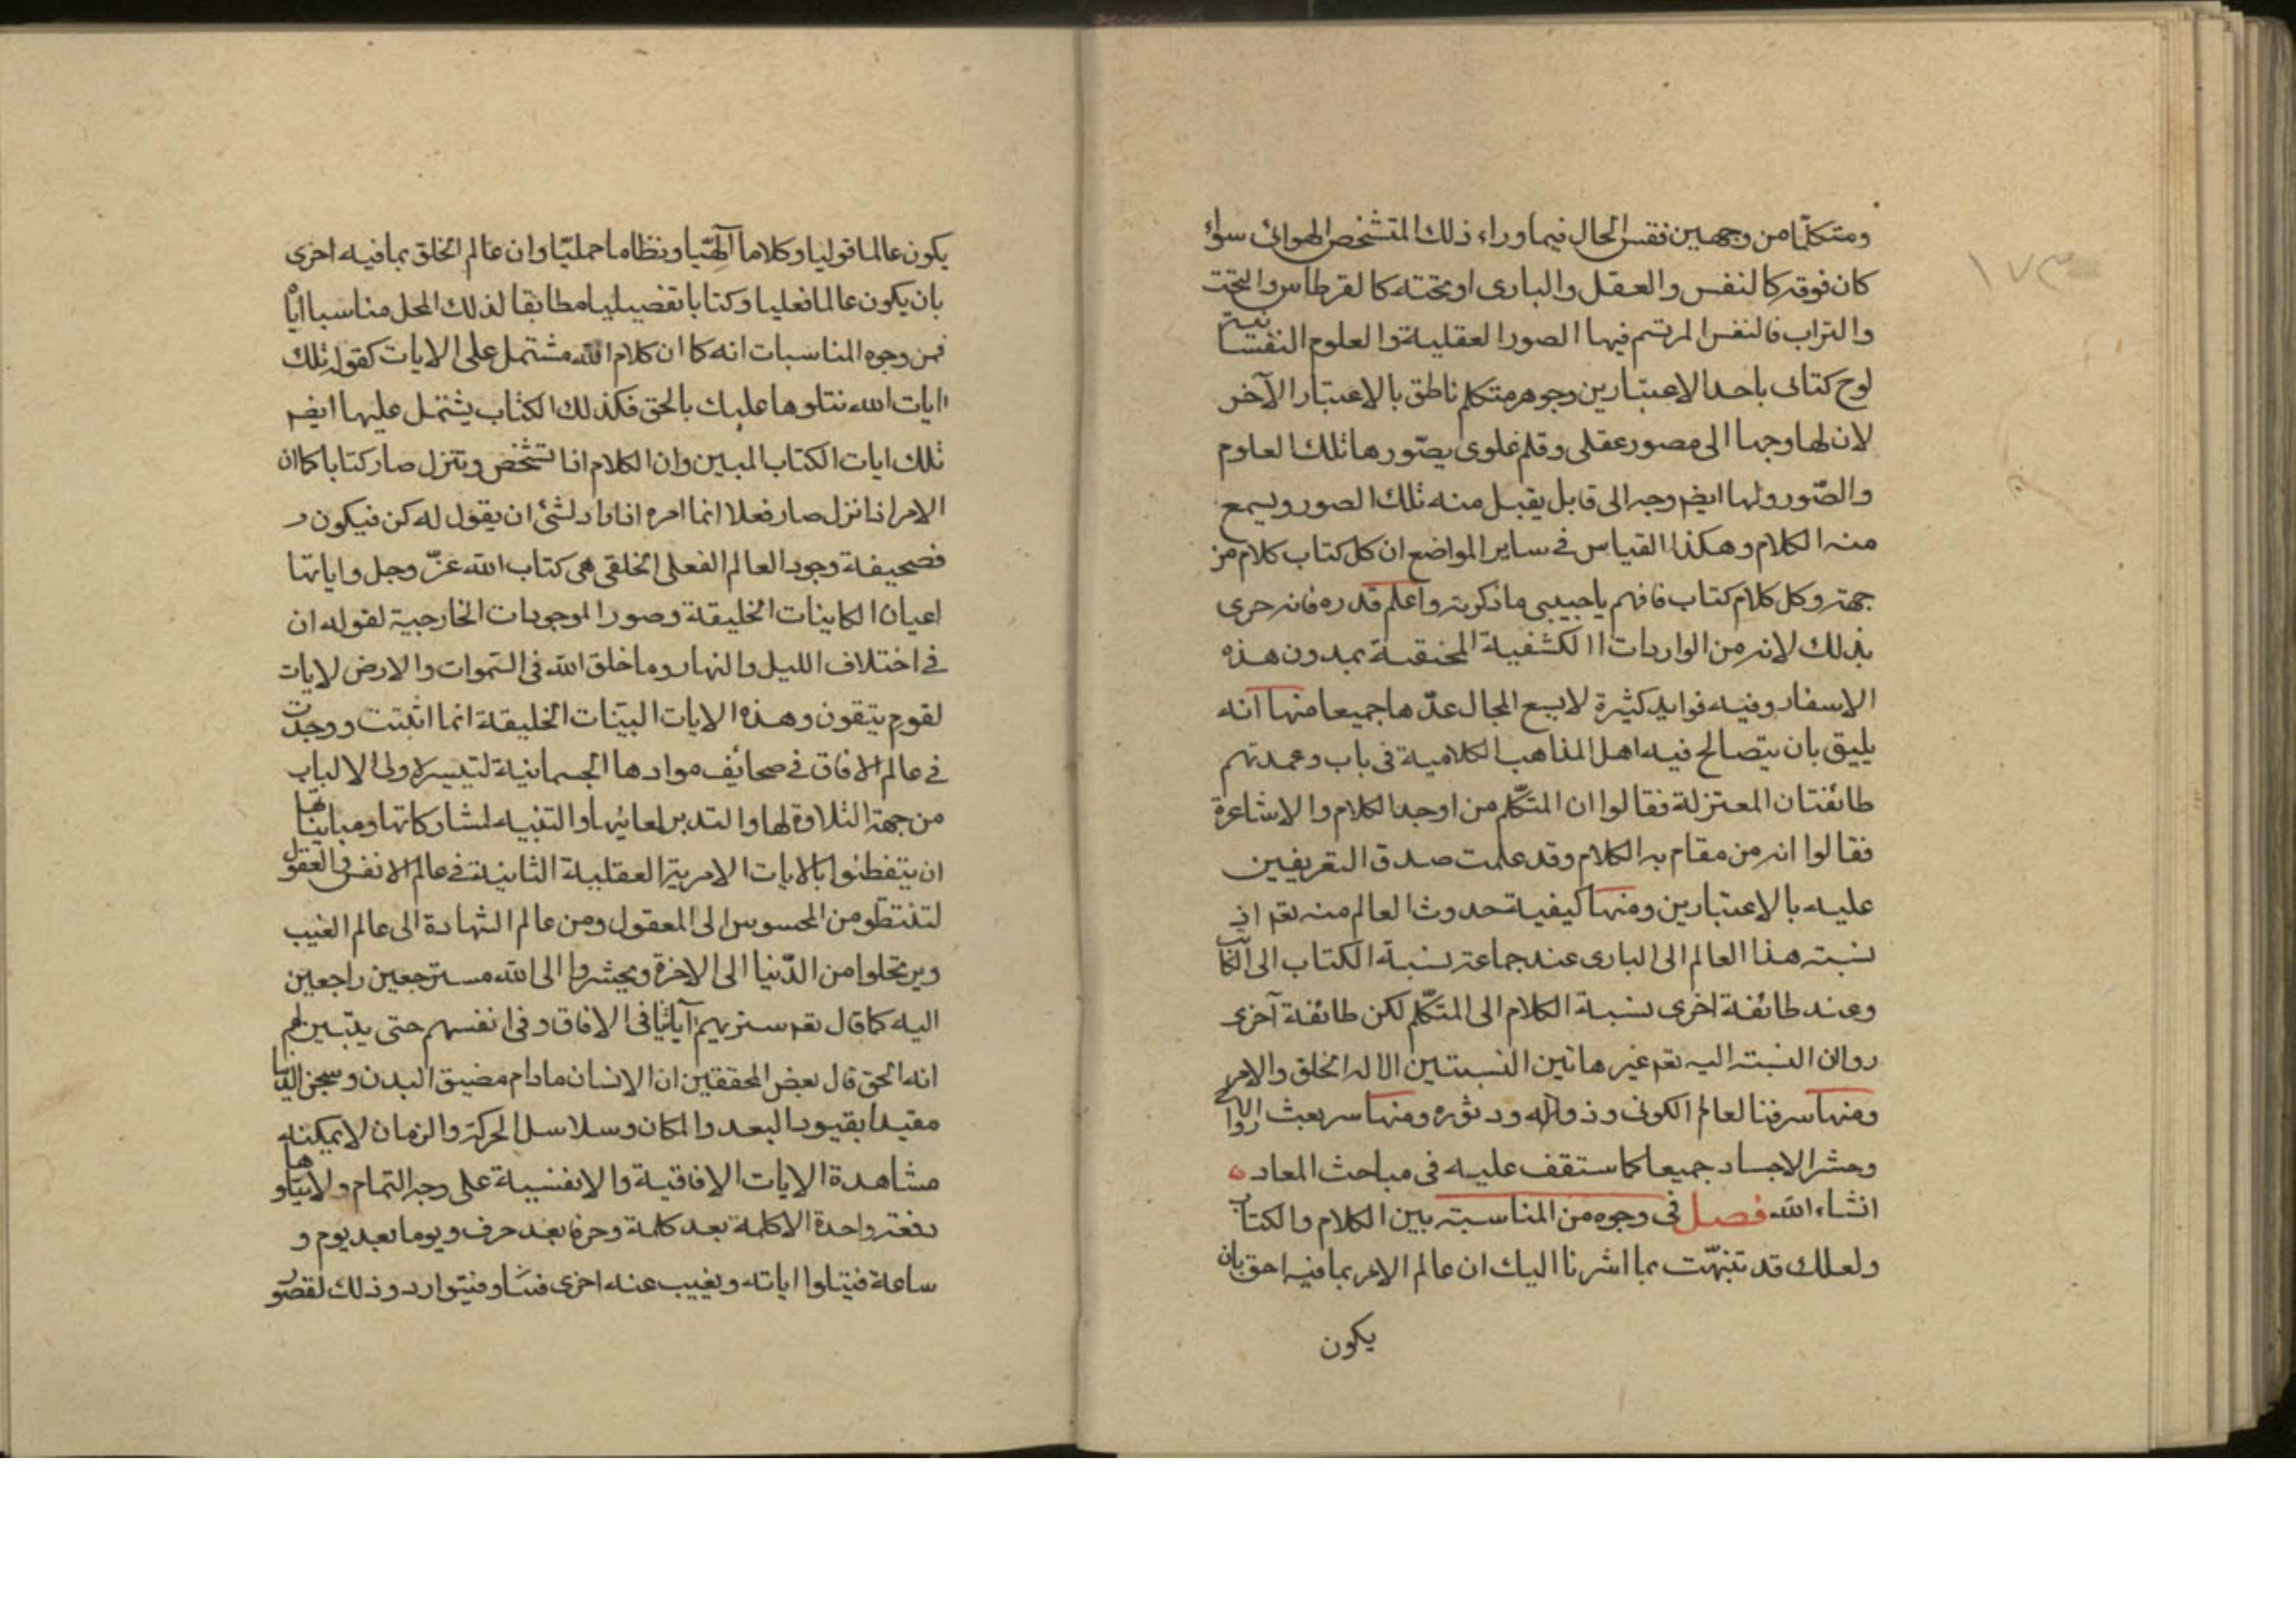 ومتكلّما من وجهين فقس الحال فيما وراء ذلك المتشخص الهوائى سواء
كان فوقه كالنفس والعقل والبارى او تحته كالقرطاس والتخت
والتراب فالنفس المرتسم فيها الصور العقلية والعلوم النفسانية
لوح كتابى باحد الاعتبارين وجوهر متكلم ناطق بالاعتبار الآخر
لان لها وجها الى مصور عقلى وقلم علوى يصّورها تلك العلوم
والصّور ولها ايضم وجه الى قابل يقبل منه تلك الصور ويسمع
منه الكلام وهكذا القياس فى ساير المواضع ان كل كتاب كلام من
جهة وكل كلام كتاب فافهم يا حبيبى ما ذكرته واعلم قدره فانه حرى
بذلك لانه من الواردات الكشفية المختقبة بمدون هذه
الاسفار وفيه فوايد كثيرة لا يسع المجال عدّها جميعا منها انه
يليق بان يتصالح فيه اهل المذاهب الكلامية فى باب وعمدتهم
طائفتان المعتزلة فقالوا ان المتكّلم من اوجد الكلام والاشاعرة
فقالوا انه من مقام به الكلام وقد علمت صدق التعريفين
عليه بالاعتبارين ومنها كيفية حدوث العالم منه تعم اذ
نسبته هذا العالم الى البارى عند جماعة نسبة الكتاب الى الكاتب
وعند طائفة اخرى نسبة الكلام الى المتكّلم لكن طائفة آخرى
روان النسبته اليه تعم غير هاتين النسبتين الا له الخلق والامر
ومنها سر فنا لعالم الكونى وذواله ودثوره ومنها سر بعث الارواح
وحشر الاجساد جميعا كما ستقف عليه فى مباحث المعاد ه
انشاء الله فصل فى وجوه من المناسبته بين الكلام والكتاب
ولعلك قد تنبهّت بما اشرنا اليك ان عالم الامر بما فيه احق بان
يكون
١٧٣
يكون عالما قوليا وكلاما آلهّيا ونظاما حمليّا وان عالم الخلق بما فيه اخرى
بان يكون عالما فعليا وكتابا تفصيليا مطابقا لذلك المحل مناسبا اياه
فمن وجوه المناسبات انه كما ان كلام الله مشتمل على الايات كقوله تلك
ايات الله نتلوها عليك بالحق فكذلك الكتاب يشتمل عليها ايضم
تلك ايات الكتاب المبين وان الكلام اذا تشخص وتنزل صار كتابا كما ان
الامر اذا نزل صار فعلا انما امره اذا اراد لشئ ان يقول له كن فيكون ر
فصحيفة وجود العالم الفعلى الخلقى هى كتاب الله عزّ وجل واياتها
اعيان الكاينات الخليقة وصور الموجودات الخارجية لقوله ان
فى اختلاف الليل والنهار وما خلق الله فى السّموات والارض لايات
لقوم يتقون وهذه الايات البيّنات الخليقة انما اثبتت ووجدت
فى عالم الافاق فى صحائف موادها الجسمانية لتيسر لاولى الالباب
من جهة التلاوة لها والتدبر لمعانيها والتنبيه لمشاركاتها ومبايناتها
ان يتفطنوا بالايات الامرية العقلية الثانية فى عالم الانفس والعقول
لتنتظو من المحسوس الى المعقول ومن عالم الشهادة الى عالم الغيب
ويرتحلوا من الدّنيا الى الاخرة ويحشروا الى الله مسترجعين راجعين
اليه كما قال تعم سنريهم آياتنا فى الافاق وفى انفسهم حتى يتبين لهم
انه الحق قال بعض المحققين ان الانسان ما دام مضيق البدن وسجن الدنيا
مقيدا بقيود البعد والمكان وسلاسل الحركة والزمان لا يمكنه
مشاهدة الايات الافاقية والانفسية على وجه التمام ولا يتلوها
دفعة واحدة الا كلمة بعد كلمة وحرفا بعد حرف ويوما بعد يوم و
ساعة فيتلوا اياته ويغيب عنه اخرى فيتوارد وذلك لقصور